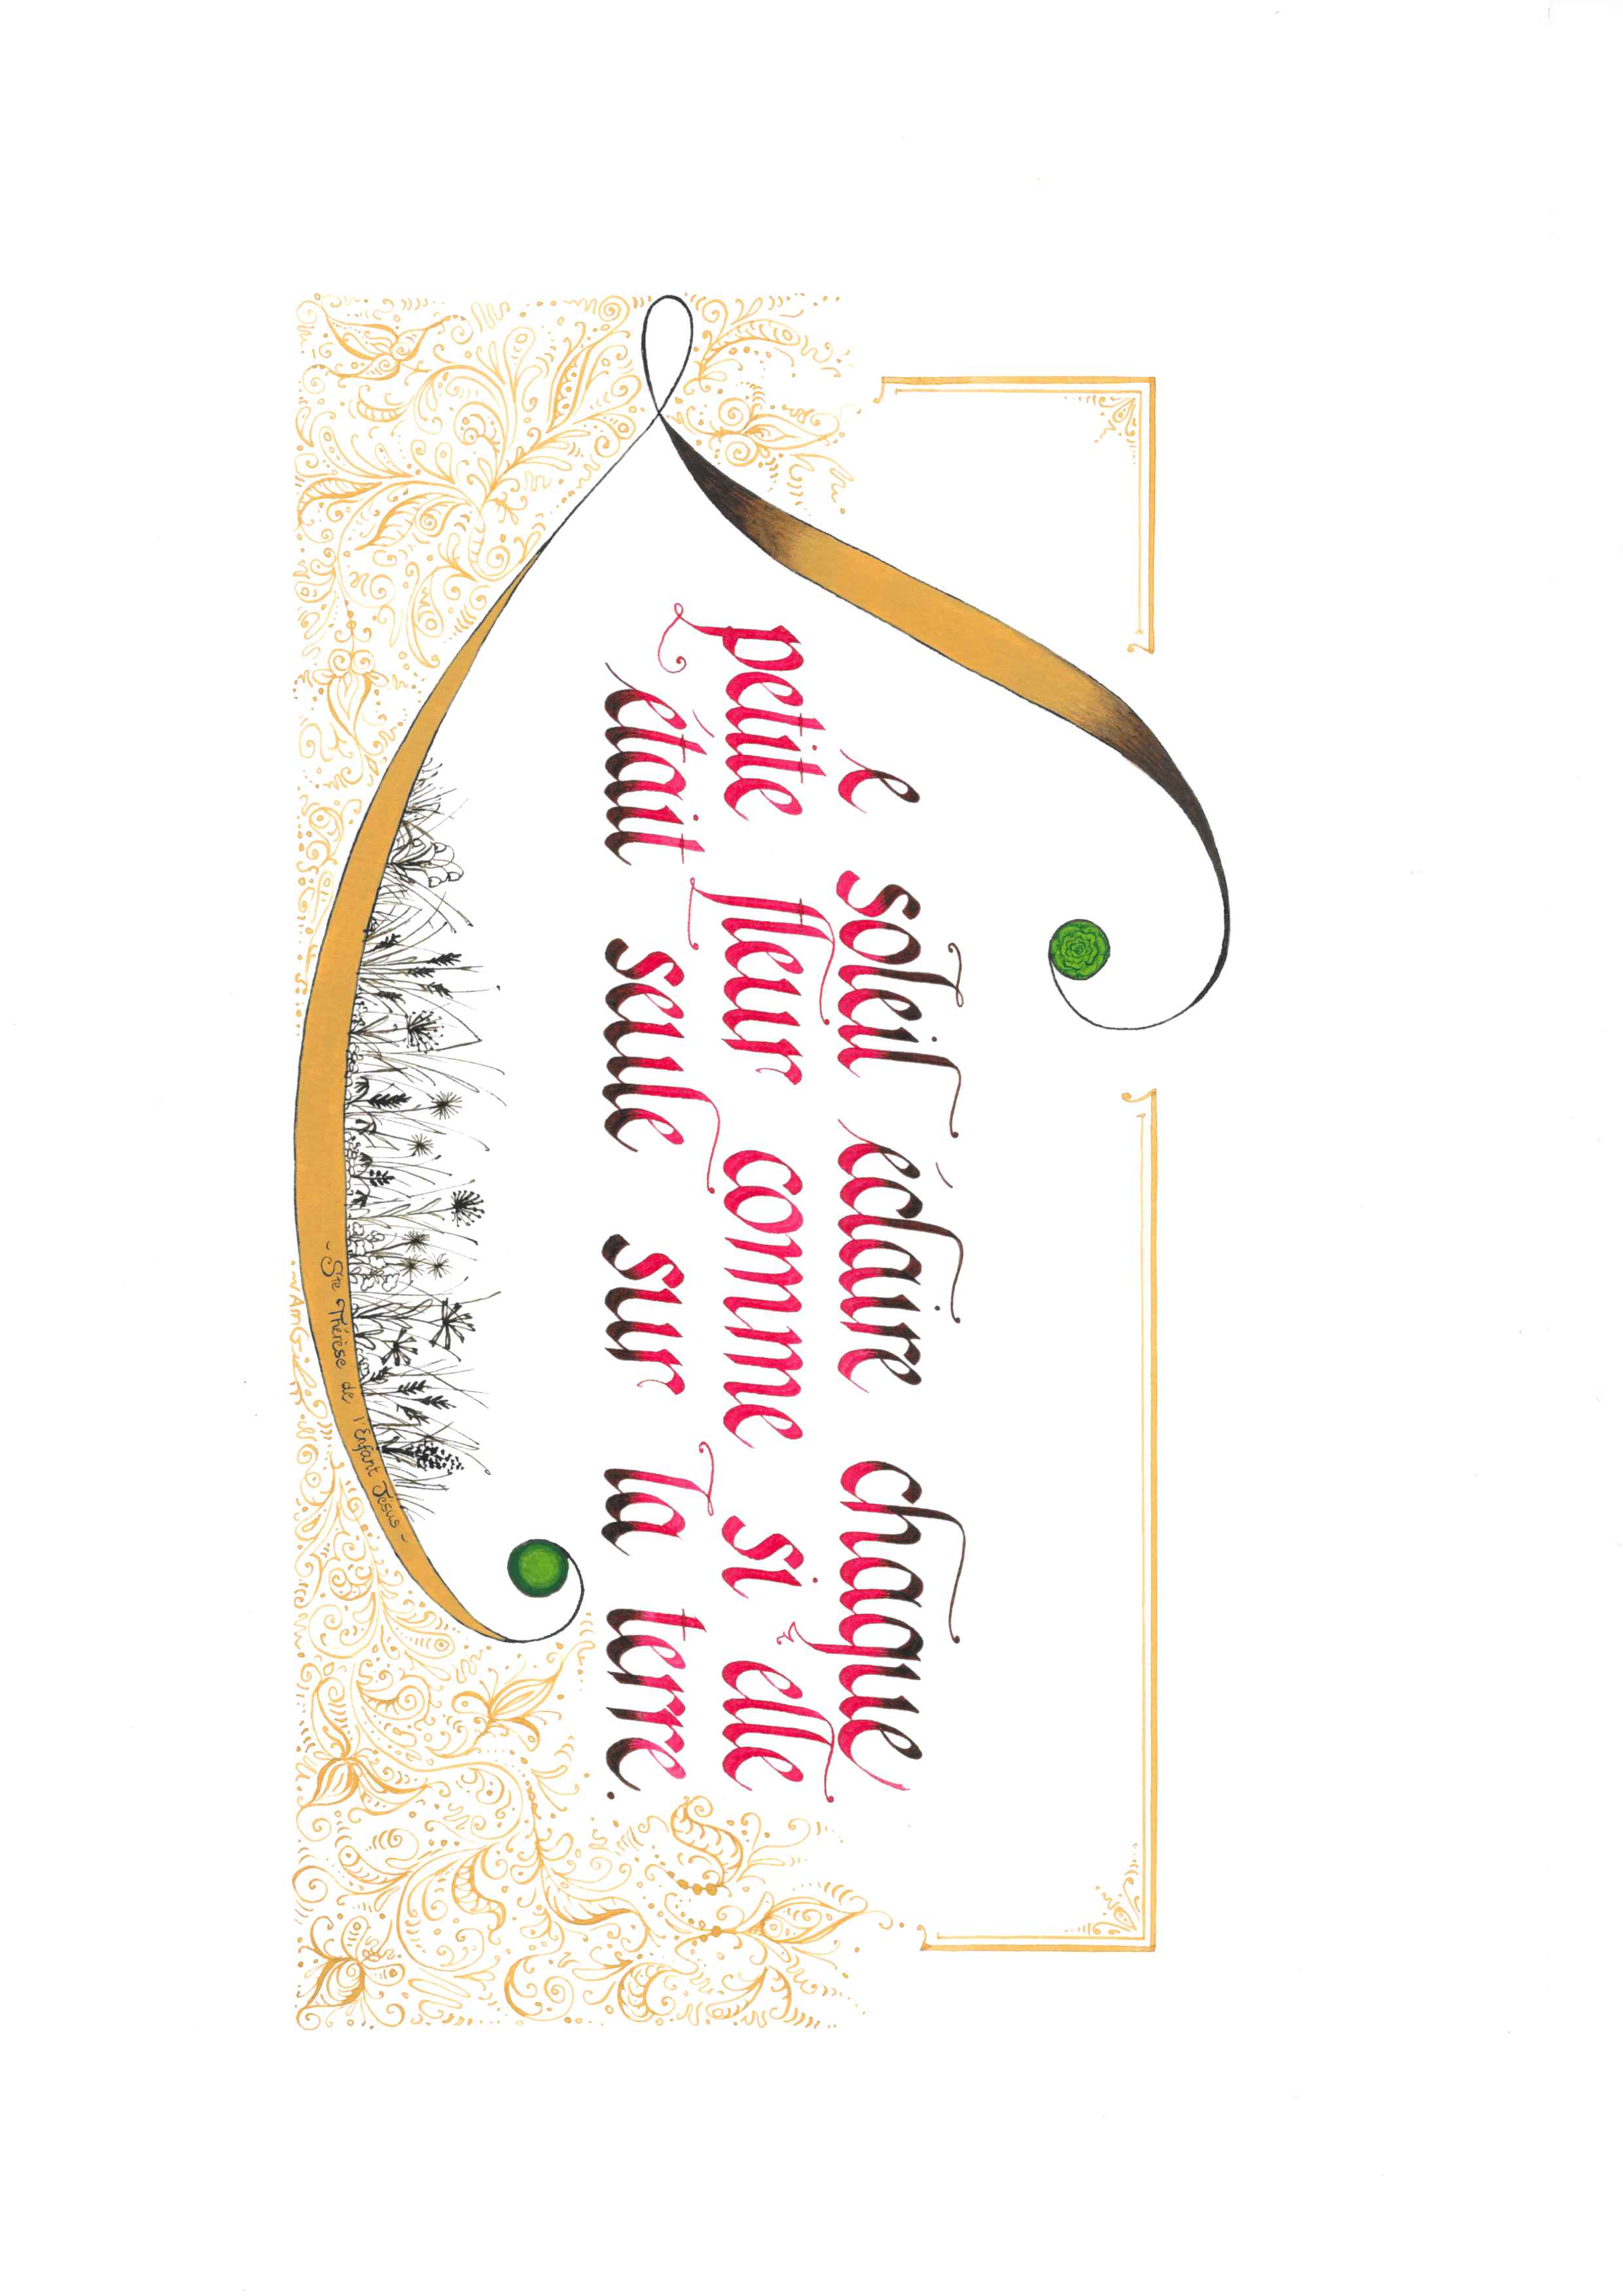 Le soleil éclaire chaque
petite fleur comme si elle
était seule sur la terre.
- Ste Thérèse de l'Enfant Jésus -